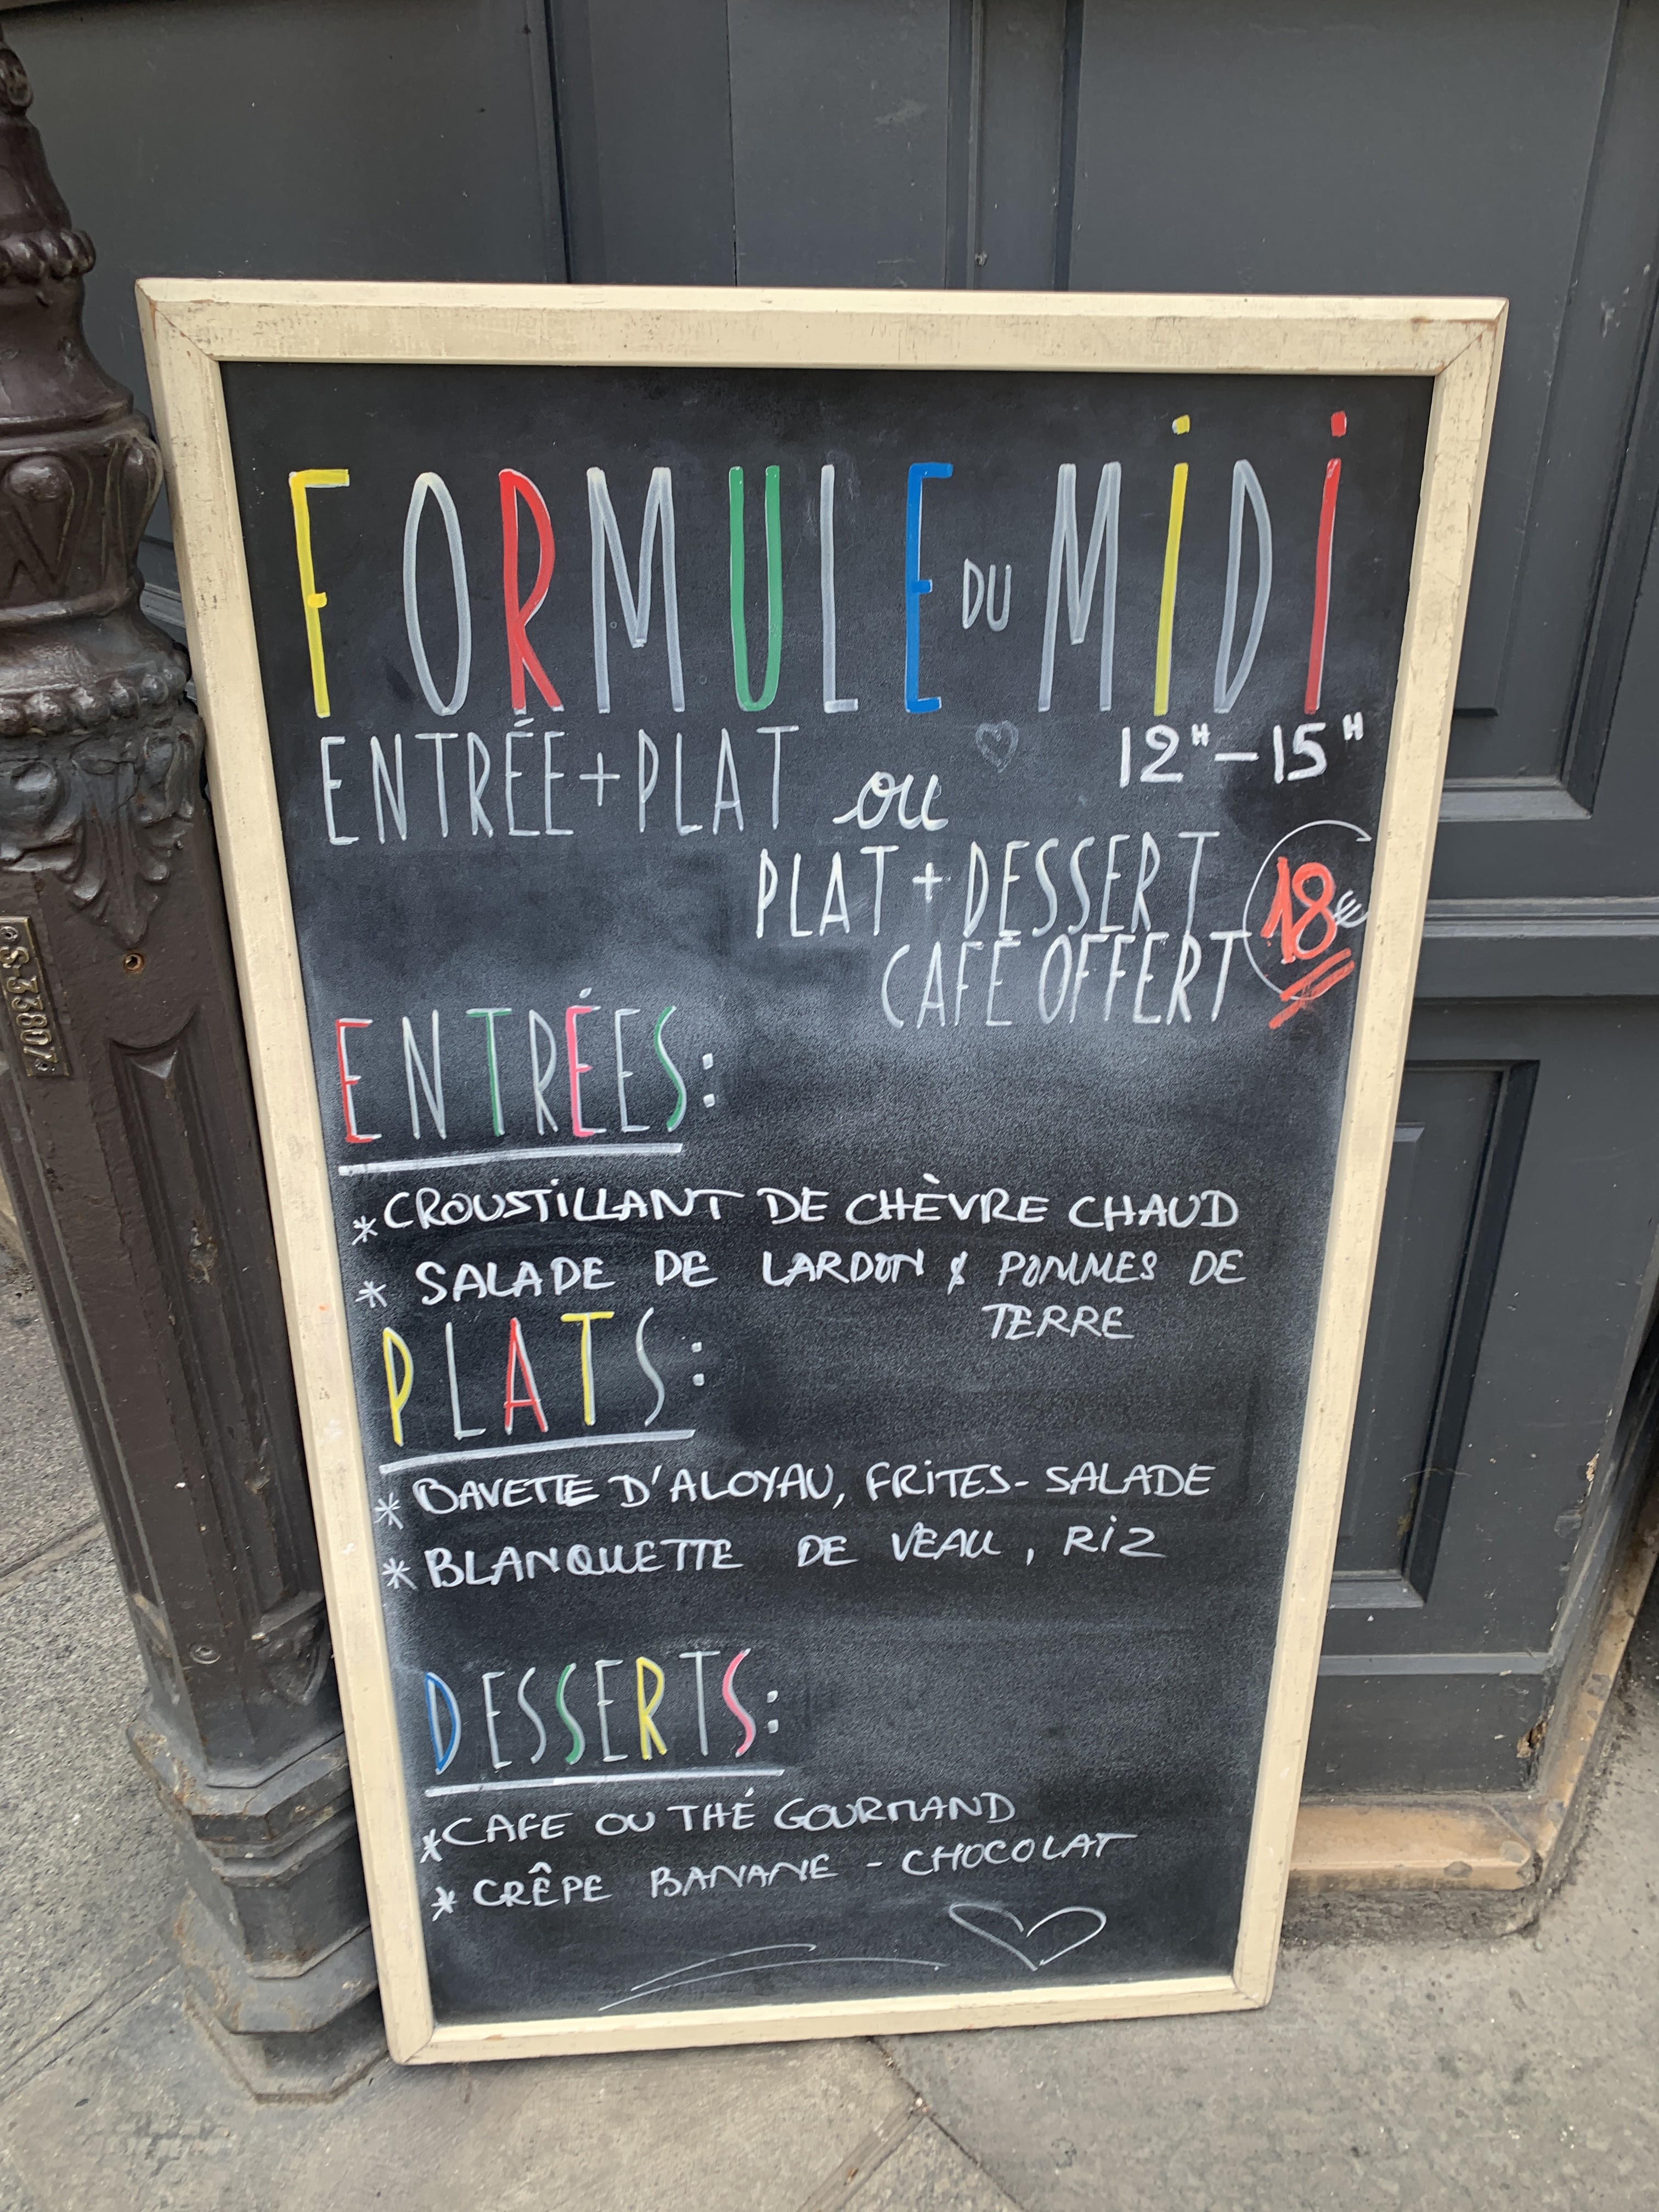 FORMULE DU MiDi
12H-15H
ENTRÉE+PLAT ou
PLAT + DESSERT
18€
CAFÉ OFFERT
ENTRÉES:
* CROUSTiLLANT DE CHÈVRE CHAUD
* SALADE DE LARDON & POMMES DE
TERRE
PLATS:
* BAVETTE D'ALOYAU, FRITES-SALADE
* BLANQUETTE DE VEAU, RiZ
DESSERTS:
* CAFE OU THÉ GOURMAND
* CRÊPE BANANE - CHOCOLAT
S-33807